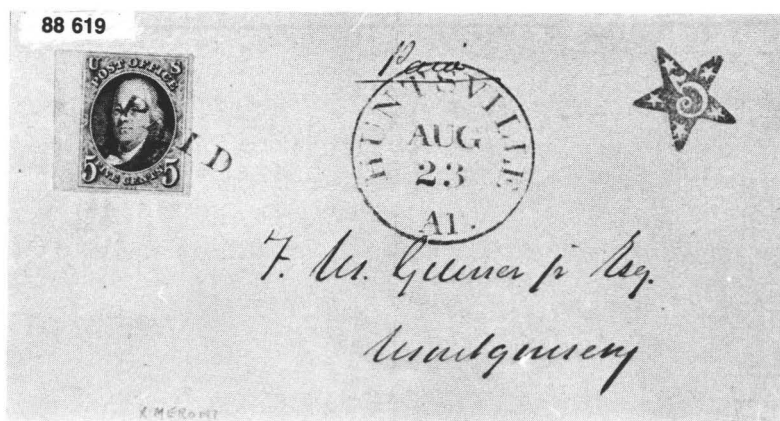 88 619
U S
POST OFFICE
5 FIVE CENTS 5
ID
Paid
HUNTSVILLE
AUG
23
Al.
5
F. M.
Esq.
Montgomery